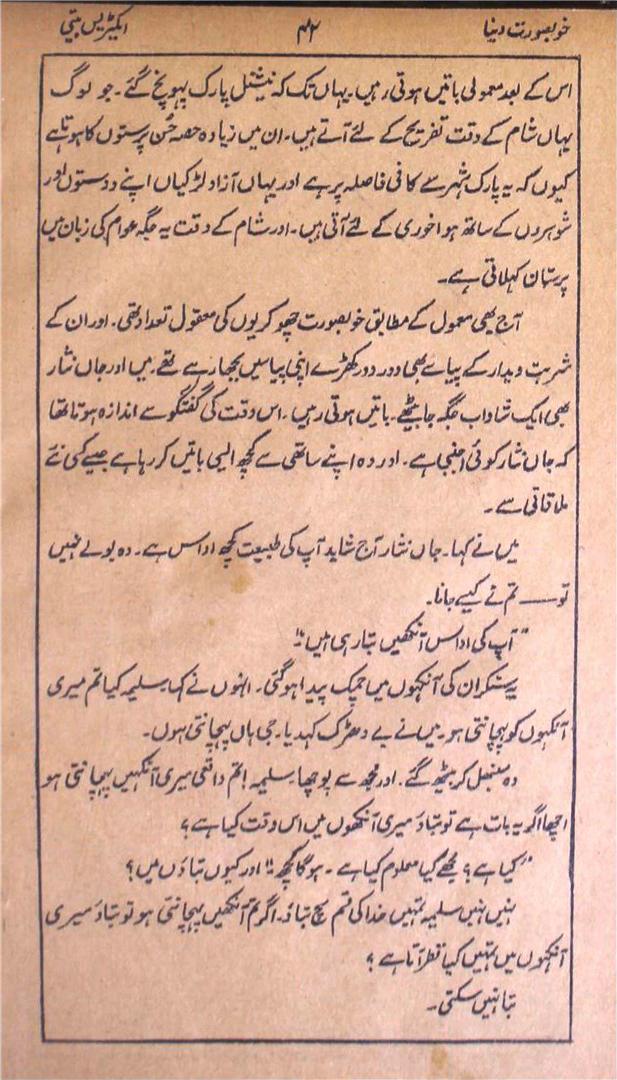 خوبصورت دنیا ۴۲ ایکٹریس بیتی
اس کے بعد معمولی باتیں ہوتی رہیں۔ یہاں تک کہ نیشنل پارک پہونچ گئے۔ جو لوگ
یہاں شام کے وقت تفریح کے لئے آتے ہیں۔ ان میں زیادہ حصہ حُسن پرستوں کا ہوتا ہے
کیوں کہ یہ پارک شہر سے کافی فاصلہ پر ہے اور یہاں آزاد لڑکیاں اپنے دوستوں اور
شوہروں کے ساتھ ہوا خوری کے لئے آتی ہیں۔ اور شام کے وقت یہ جگہ عوام کی زبان میں
پرستان کہلاتی ہے۔
آج بھی معمول کے مطابق خوبصورت چھوکریوں کی معقول تعداد تھی۔ اور ان کے
شربت دیدار کے پیاسے بھی دور دور کھڑے اپنی پیاسیں بجھا رہے تھے۔ میں اور جاں نثار
بھی ایک شاداب جگہ جا بیٹھے۔ باتیں ہوتی رہیں۔ اس وقت کی گفتگو سے اندازہ ہوتا تھا
کہ جاں نثار کوئی اجنبی ہے۔ اور وہ اپنے ساتھی سے کچھ ایسی باتیں کر رہا ہے جیسے کسی نئے
ملاقاتی سے۔
میں نے کہا۔ جاں نثار آج شاید آپ کی طبیعت کچھ اداس ہے۔ وہ بولے نہیں
تو —— تم نے کیسے جانا۔
"آپ کی اداس آنکھیں بتا رہی ہیں"۔
یہ سنکر ان کی آنکھوں میں چمک پیدا ہو گئی۔ انہوں نے کہا۔ سلیمہ کیا تم میری
آنکھوں کو پہچانتی ہو۔ میں نے بے دھڑک کہدیا۔ جی ہاں پہچانتی ہوں۔
وہ سنبھل کر بیٹھ گئے۔ اور مجھ سے پوچھا۔ سلیمہ! تم واقعی میری آنکھیں پہچانتی ہو
اچھا اگر یہ بات ہے تو بتاؤ میری آنکھوں میں اس وقت کیا ہے؟
"کیا ہے؟ مجھے کیا معلوم کیا ہے۔ ہو گا کچھ" اور کیوں بتاؤں میں؟
نہیں نہیں سلیمہ تمہیں خدا کی قسم سچ بتاؤ۔ اگر تم آنکھیں پہچانتی ہو تو بتاؤ میری
آنکھوں میں تمہیں کیا نظر آتا ہے؟
بتا نہیں سکتی۔